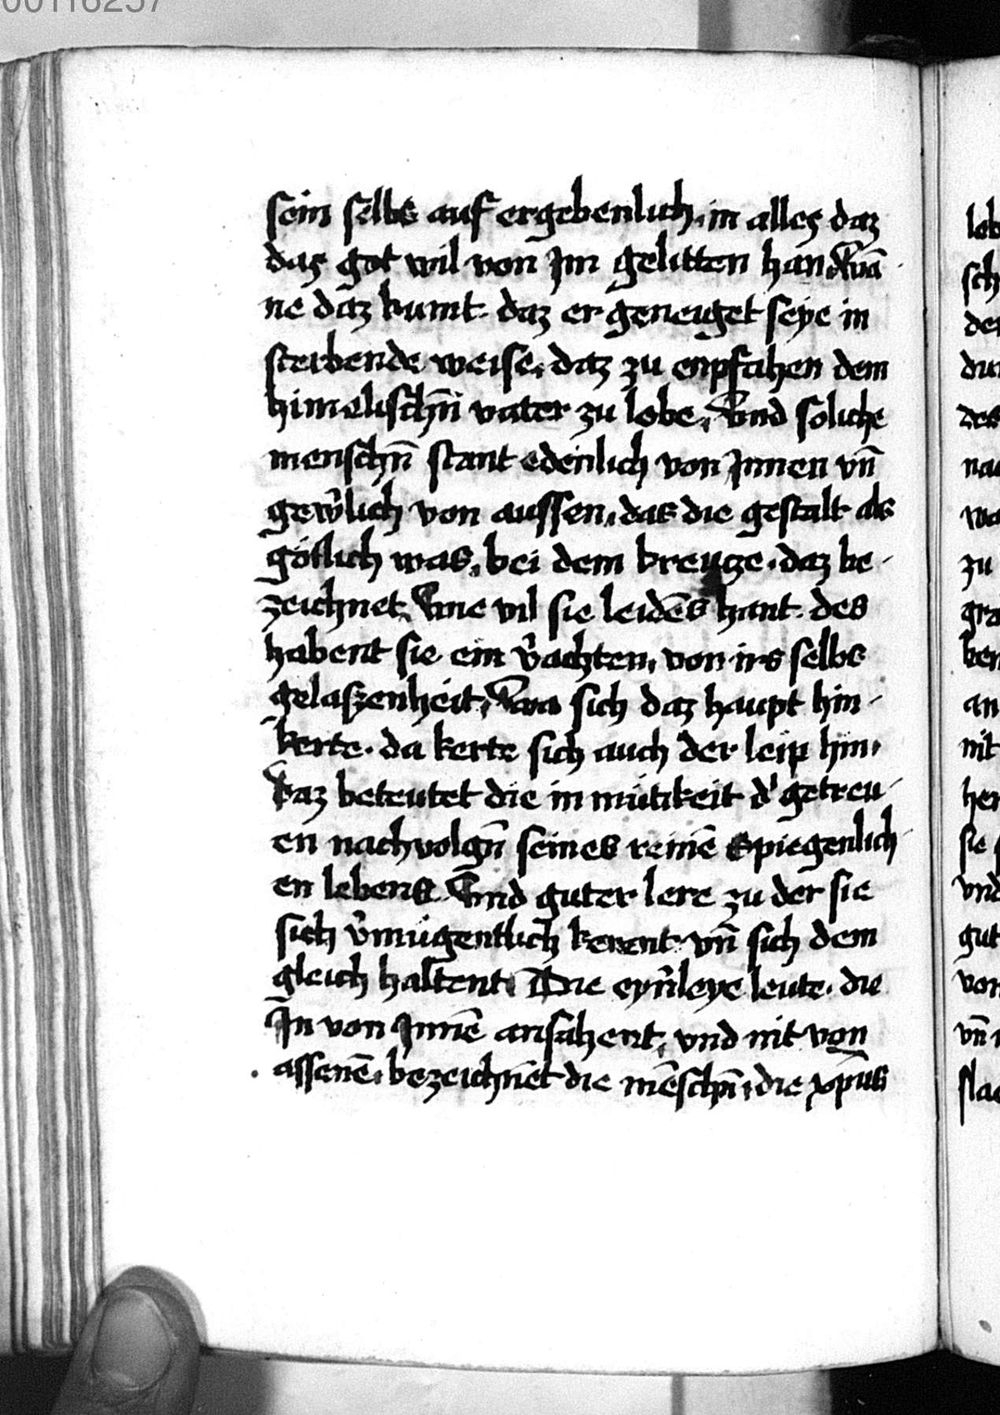 00116257
sein selbs auf ergebenlich. in alles daz
das got wil von Im gelitten han. Wā
ne daz kumt. daz er geneiget seye in
sterbende weise. daz zu enpfahen dem
himelischn̄ vater zu lobe. Vnd soliche
menschn̄ stant edenlich von Innen vn̄
gew̄lich von aussen. das die gestalt als
götlich was. bei dem kreutze. daz be-
zeichnet. Wie vil sie leidēs hant. des
habent sie ein v̄achten. von irs selbs
gelaszenheit. Wa sich daz haupt hin-
kerte. da kerte sich auch der leip hin.
Daz beteutet die in mütikeit d' getreu-
en nachvolgn̄ seines reinē Spiegenlich-
en lebens. Vnd guter lere zu der sie
sich v̄mügentlich kerent. vn̄ sich dem
gleich haltent. Die eyn̄leye leute. die
In von Innē ansahent. vnd nit von
assenē. bezeichnēt die mēschn̄. die xp̄us